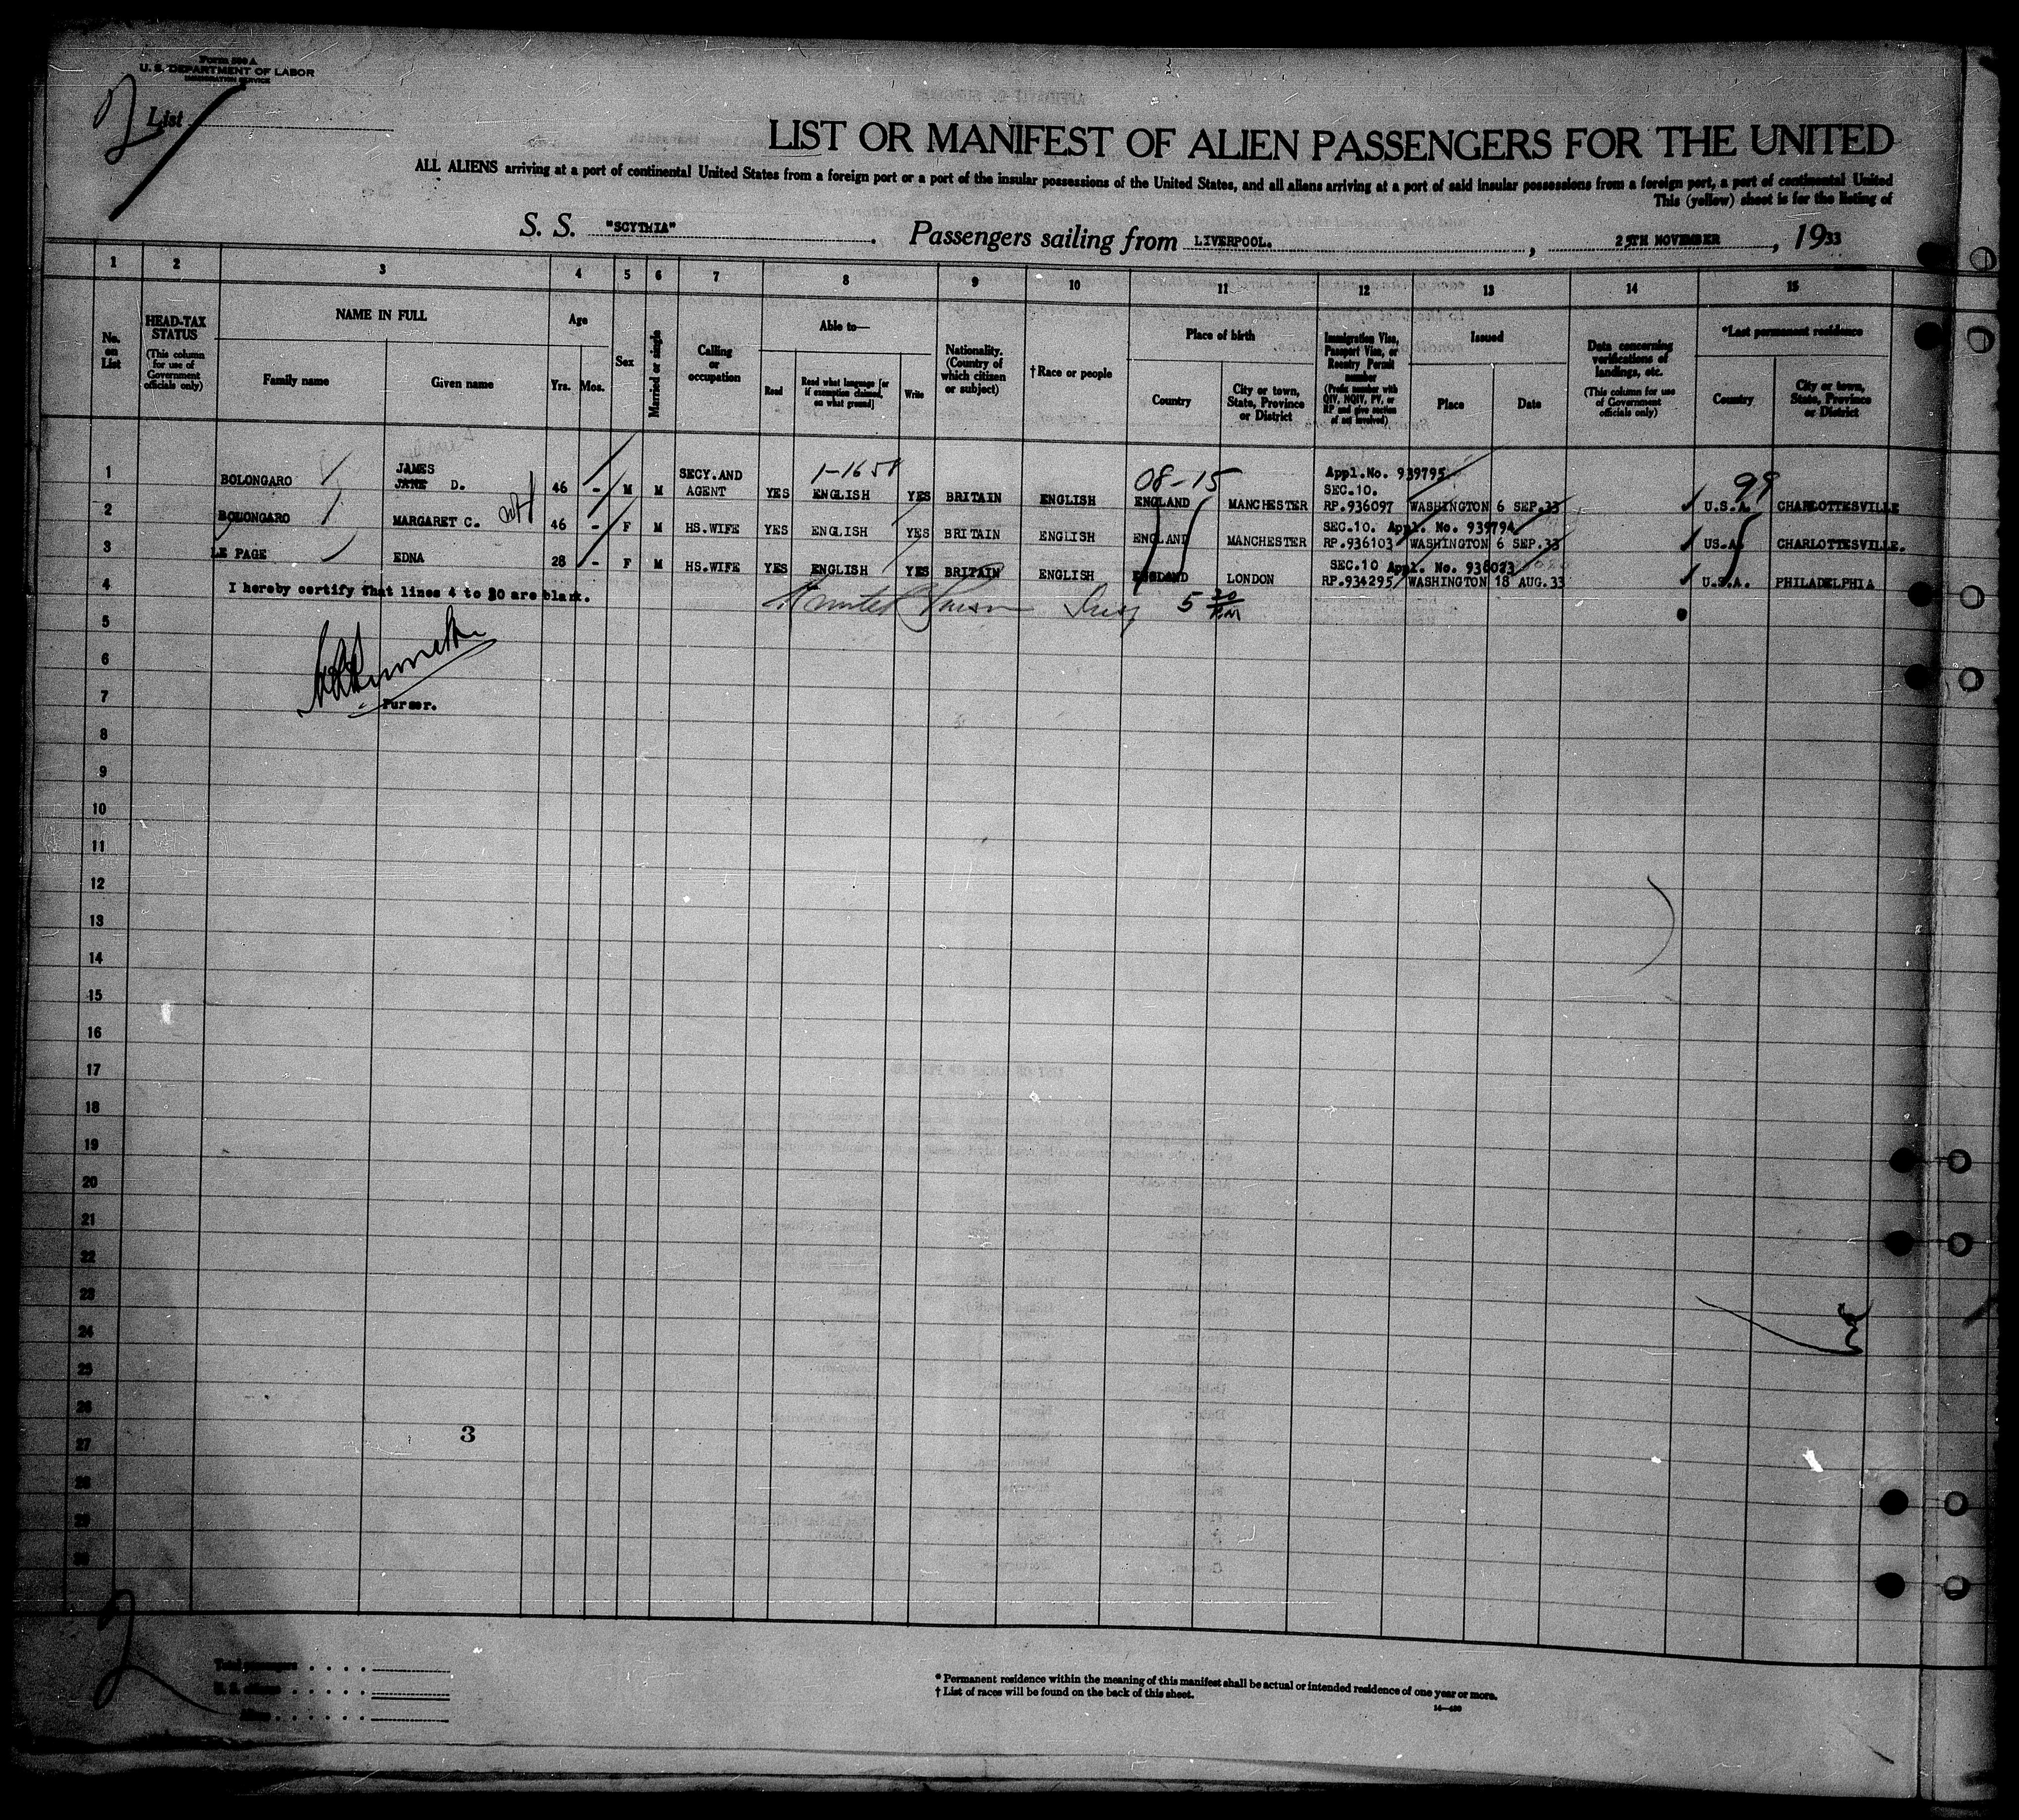 Form 500 A
U. S. DEPARTMENT OF LABOR
IMMIGRATION SERVICE
2
List
LIST OR MANIFEST OF ALIEN PASSENGERS FOR THE UNITED
ALL ALIENS arriving at a port of continental United States from a foreign port or a port of the insular possessions of the United States, and all aliens arriving at a port of said insular possessions from a foreign port, a port of continental United
This (yellow) sheet is for the listing of
S. S. "SCYTHIA" . Passengers sailing from LIVERPOOL. , 25TH NOVEMBER , 1933
1 2 3 4 5 6 7 8 9 10 11 12 13 14 15
No. on List
HEAD-TAX STATUS (This column for use of Government officials only)
NAME IN FULL
Family name Given name
Age
Yrs. Mos.
Sex
Married or single
Calling or occupation
Able to—
Read Read what language [or if exemption claimed, on what ground] Write
Nationality. (Country of which citizen or subject)
†Race or people
Place of birth
Country City or town, State, Province or District
Immigration Visa, Passport Visa, or Reentry Permit number (Prefix number with QIV, NQIV, PV, or RP and give section of act involved)
Issued
Place Date
Data concerning verifications of landings, etc. (This column for use of Government officials only)
*Last permanent residence
Country City or town, State, Province or District
1 BOLONGARO JAMES JANE D. 46 - M M SECY. AND AGENT YES ENGLISH YES BRITAIN ENGLISH ENGLAND MANCHESTER Appl.No. 939795 SEC.10. RP.936097 WASHINGTON 6 SEP.33 U.S.A. CHARLOTTESVILLE
1-16 58
08-15
99
2 BOLONGARO MARGARET C. 46 - F M HS.WIFE YES ENGLISH YES BRITAIN ENGLISH ENGLAND MANCHESTER SEC.10. Appl. No. 939794 RP.936103 WASHINGTON 6 SEP.33 US.A. CHARLOTTESVILLE.
3 LE PAGE EDNA 28 - F M HS.WIFE YES ENGLISH YES BRITAIN ENGLISH ENGLAND LONDON SEC.10 Appl. No. 936023 RP.934295 WASHINGTON 18 AUG.33 U.S.A. PHILADELPHIA
4 I hereby certify that lines 4 to 30 are blank.
Insp 5 30 P.M
5
6
7 Purser.
8
9
10
11
12
13
14
15
16
17
18
19
20
21
22
23
24
25
26
3
27
28
29
30
2
Total passengers
U. S. citizens
Aliens
* Permanent residence within the meaning of this manifest shall be actual or intended residence of one year or more.
† List of races will be found on the back of this sheet.
14—480